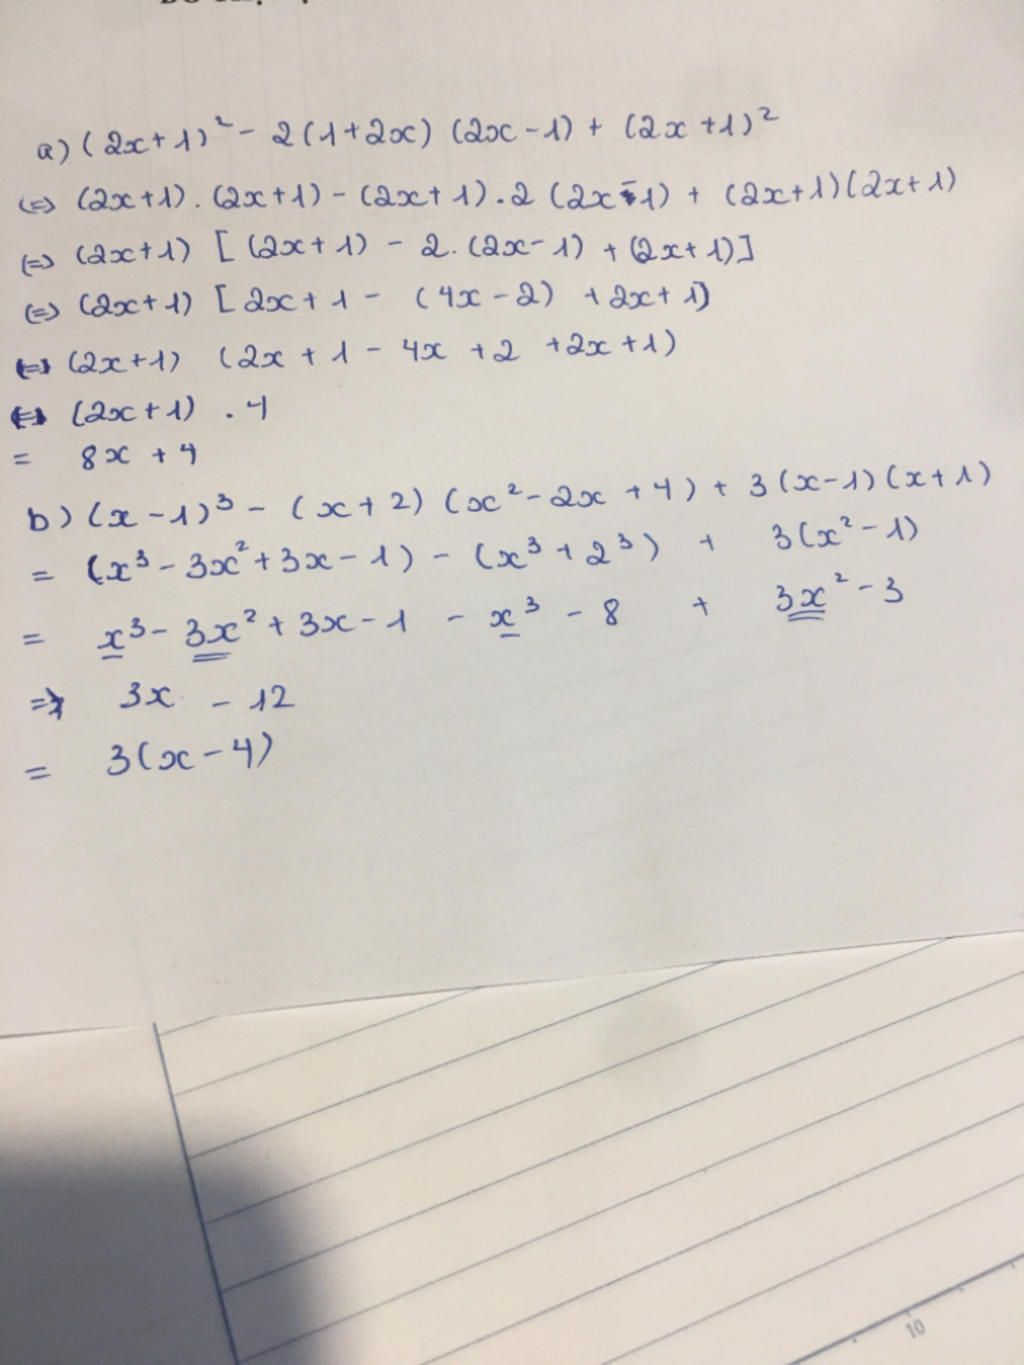 a) (2x+1)² - 2(1+2x) (2x-1) + (2x+1)²
⇔ (2x+1). (2x+1) - (2x+1).2 (2x-1) + (2x+1)(2x+1)
⇔ (2x+1) [(2x+1) - 2.(2x-1) + (2x+1)]
⇔ (2x+1) [2x+1 - (4x-2) +2x+1]
⇔ (2x+1) (2x+1-4x+2+2x+1)
⇔ (2x+1) . 4
= 8x + 4
b) (x-1)³ - (x+2) (x²-2x+4) + 3(x-1)(x+1)
= (x³-3x²+3x-1) - (x³+2³) + 3(x²-1)
= x³-3x²+3x-1 - x³ - 8 + 3x²-3
=> 3x - 12
= 3(x-4)
10